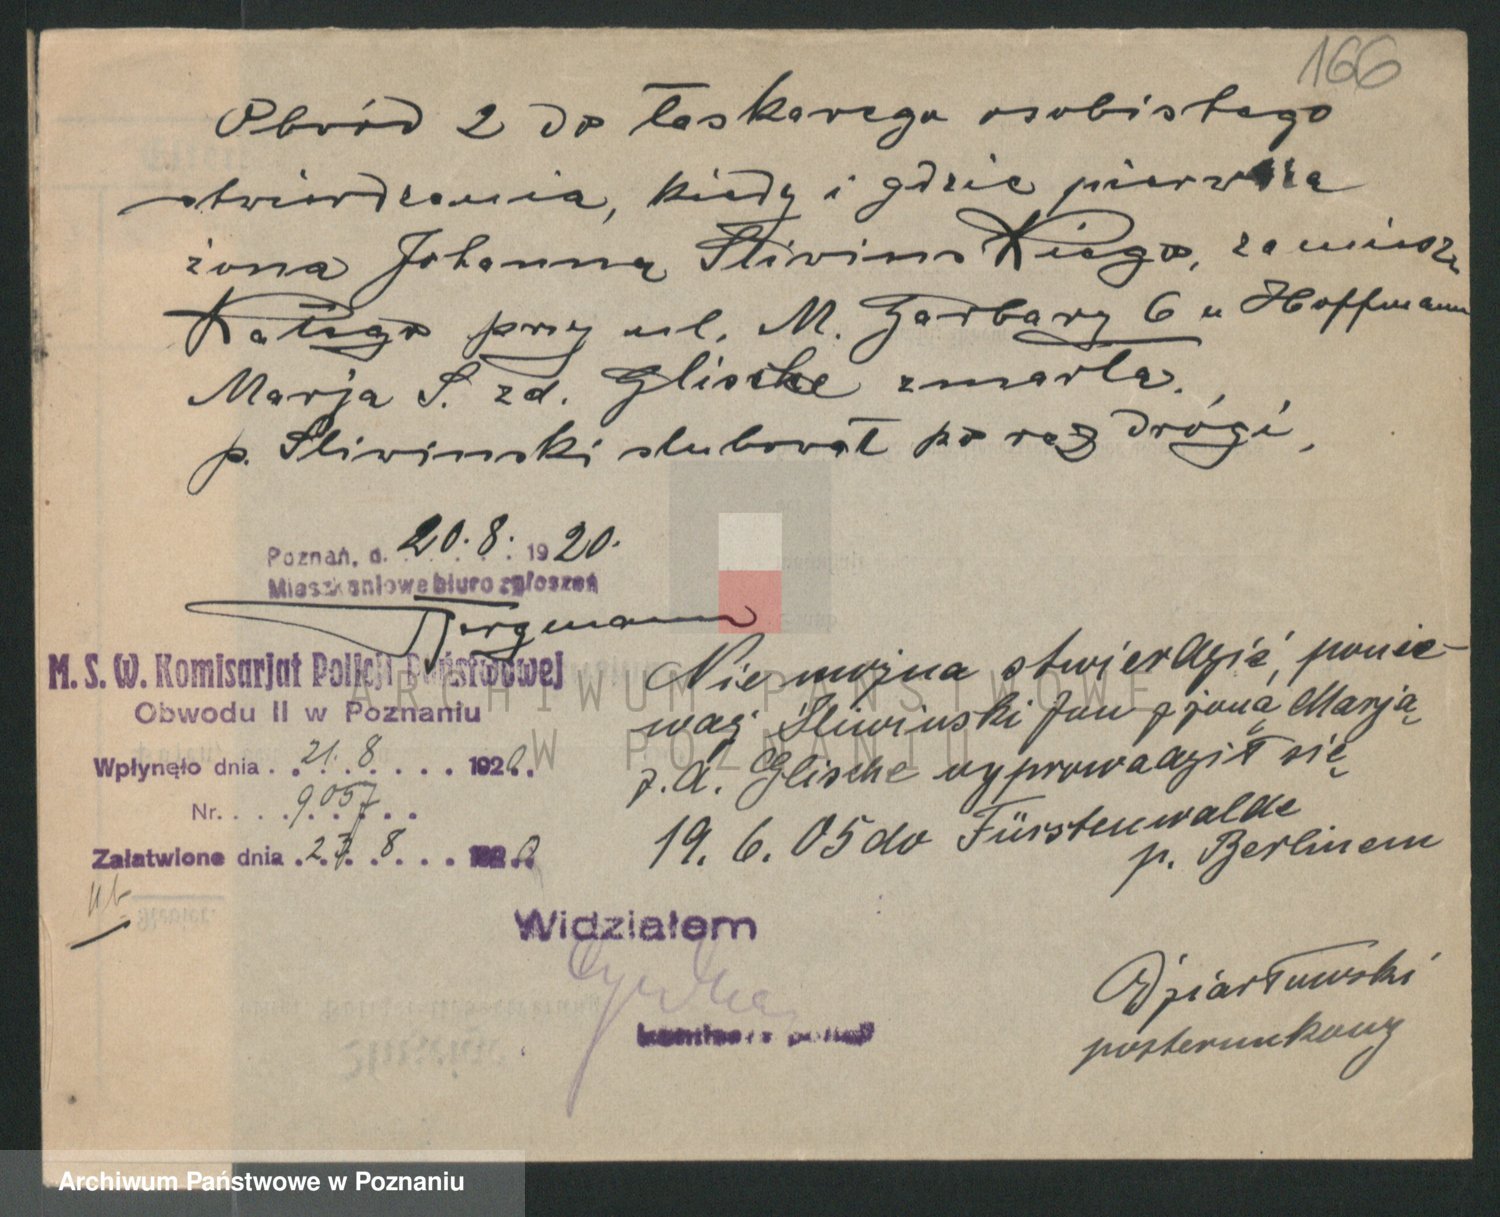 166
Obwód 2 do łaskawego osobistego
stwierdzenia, kiedy i gdzie pierwsza
żona Johanna Sliwinskiego, zamiesz
kałego przy ul. M. Garbary 6 u Hoffmann
Marja S. zd. Glische zmarła.
p. Sliwinski slubował po raz drógi,
Poznań, d. 20.8. 1920.
Mieszkaniowe biuro zgłoszeń
Bergmann
M. S. W. Komisarjat Policji Państwowej
Obwodu II w Poznaniu
Wpłynęło dnia . 21. 8 . 1920.
Nr. 9057
Załatwione dnia . 23. 8 . 1920
Nie można stwierdzić, ponie-
waż Sliwinski Jan z żoną Marją
z. d. Glische wyprowadził się
19. 6. 05 do Fürstenwalde
p. Berlinem
Widziałem
komisarz policji
posterunkowy
ARCHIWUM PAŃSTWOWE
W POZNANIU
Archiwum Państwowe w Poznaniu